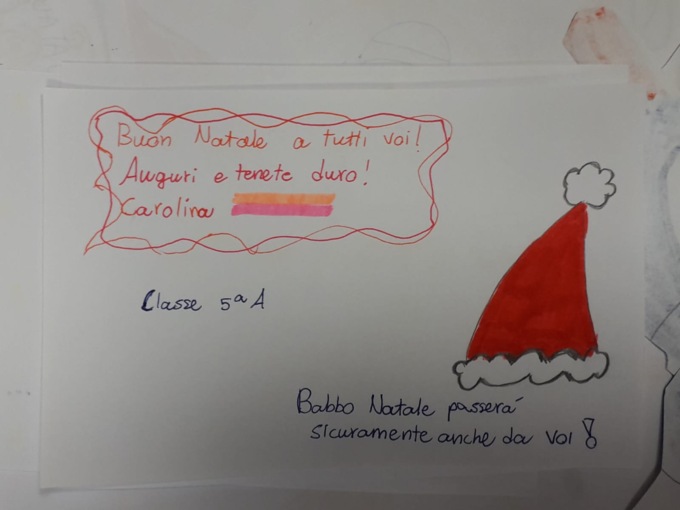 Buon Natale a tutti voi!
Auguri e tenete duro!
Carolina
Classe 5ª A
Babbo Natale passerá
sicuramente anche da voi!